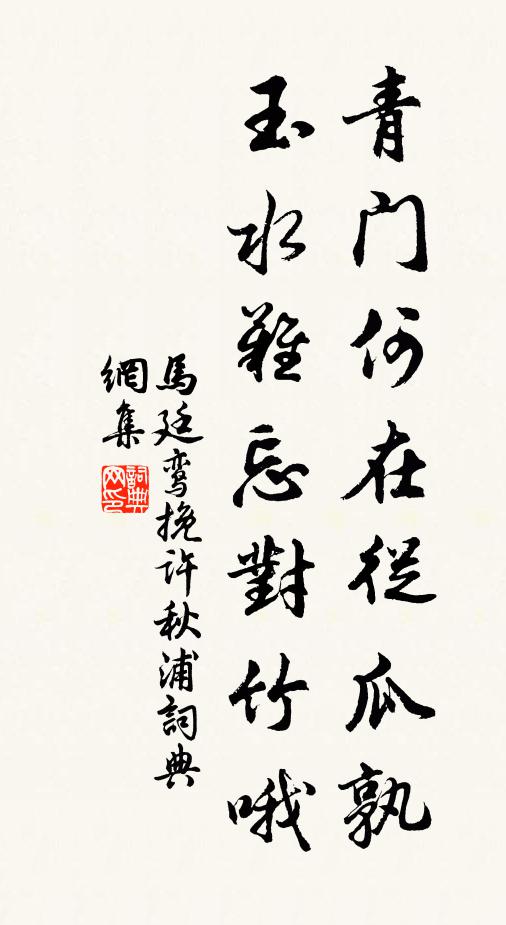 青門何在從瓜孰
玉水難忘對竹哦
馬廷鸞挽許秋浦詞典
網集
詞典
网印